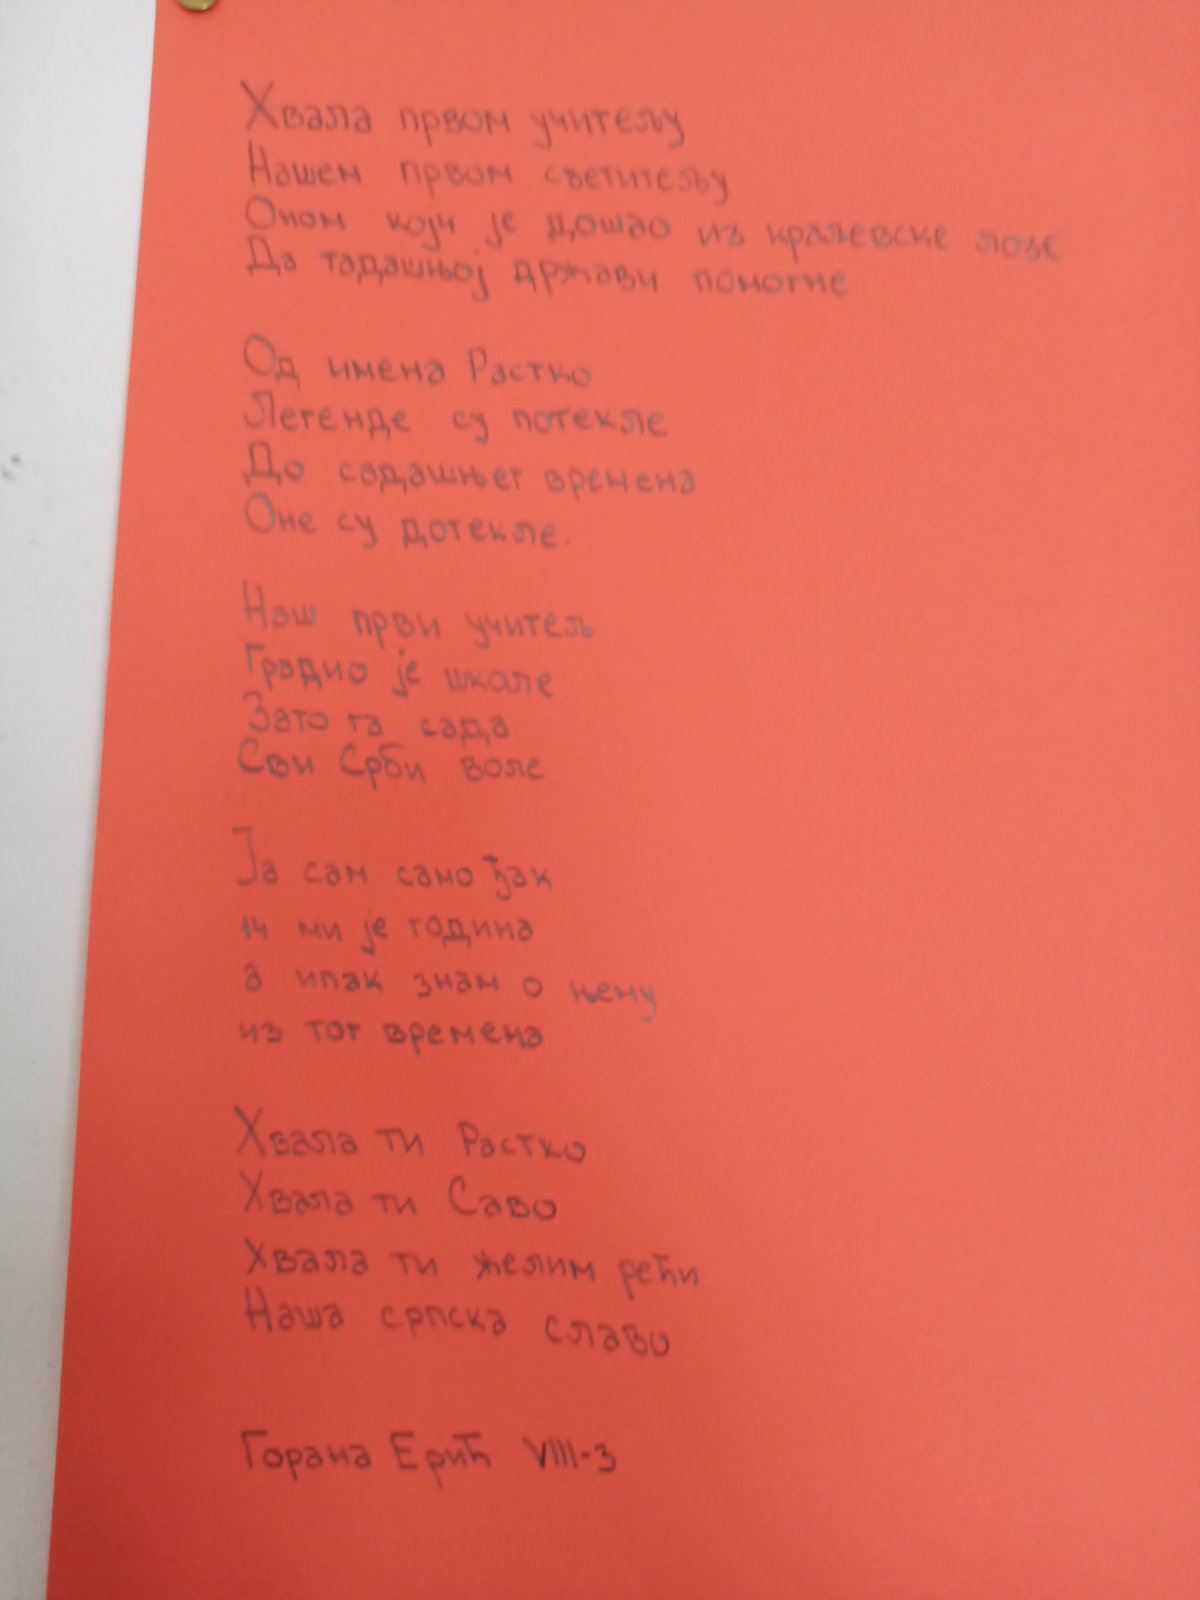 Хвала првом учитељу
Нашем првом светитељу
Оном који је дошао из краљевске лозе
Да тадашњој држави помогне
Од имена Растко
Легенде су потекле
До садашњег времена
Оне су дотекле.
Наш први учитељ
Градио је школе
Зато га сада
Сви Срби воле
Ја сам само ђак
14 ми је година
а ипак знам о њему
из тог времена
Хвала ти Растко
Хвала ти Саво
Хвала ти желим рећи
Наша српска славо
Горана Ерић VIII-3